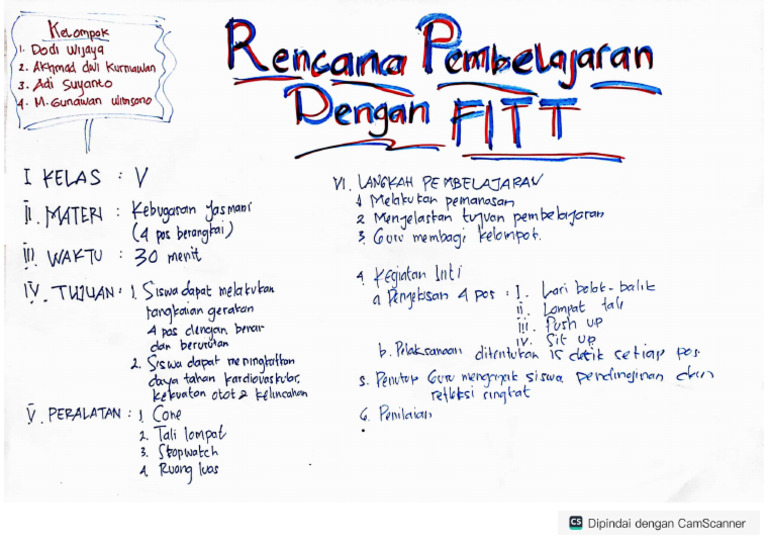 Kelompok
1. Dodi Wijaya
2. Akhmad dwi Kurniawan
3. Adi Suyanto
4. M. Gunawan Wibisono
Rencana Pembelajaran
Dengan FITT
I KELAS : V
II. MATERI : Kebugaran Jasmani
(4 pos berangkai)
III. WAKTU : 30 menit
IV. TUJUAN : 1. Siswa dapat melakukan
rangkaian gerakan
4 pos dengan benar
dan berurutan
2. Siswa dapat meningkatkan
daya tahan kardiovaskular,
kekuatan otot 2 kelincahan
V. PERALATAN : 1. Cone
2. Tali lompat
3. Stopwatch
4. Ruang luas
VI. LANGKAH PEMBELAJARAN
1. Melakukan pemanasan
2. Menjelaskan tujuan pembelajaran
3. Guru membagi kelompok.
4. Kegiatan Inti
a Penjelasan 4 pos : I. Lari bolak-balik
ii. Lompat tali
iii. Push up
iv. Sit up
b. Pelaksanaan ditentukan 15 detik setiap pos
5. Penutup Guru mengajak siswa pendinginan dan
refleksi singkat
6. Penilaian
CS Dipindai dengan CamScanner